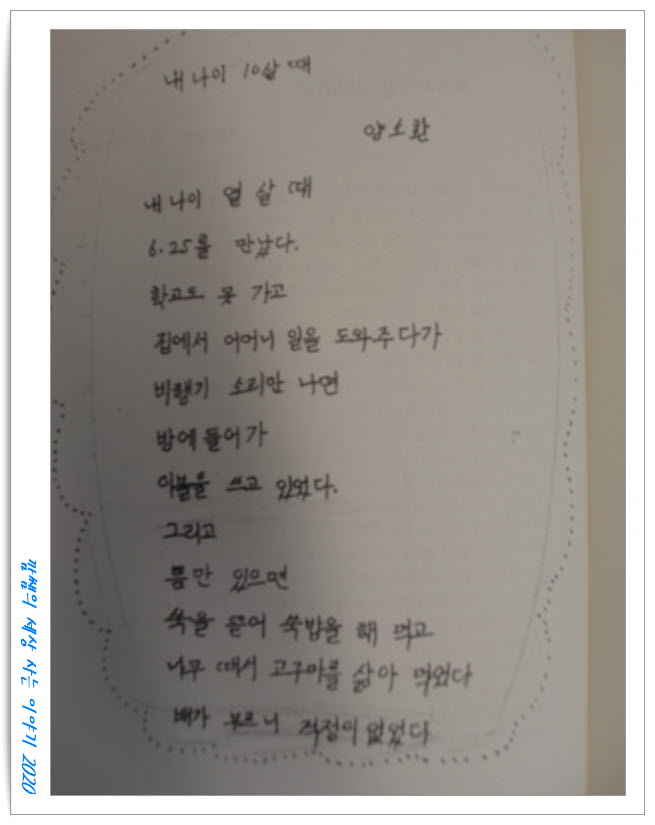 내 나이 10살 때
양소환
내 나이 열 살 때
6.25를 만났다.
학교도 못 가고
집에서 어머니 일을 도와주다가
비행기 소리만 나면
방에 들어가
이불을 쓰고 있었다.
그리고
틈만 있으면
쑥을 뜯어 쑥밥을 해 먹고
나무 때서 고구마를 삶아 먹었다
배가 부르니 걱정이 없었다
세상 사는 이야기 2020